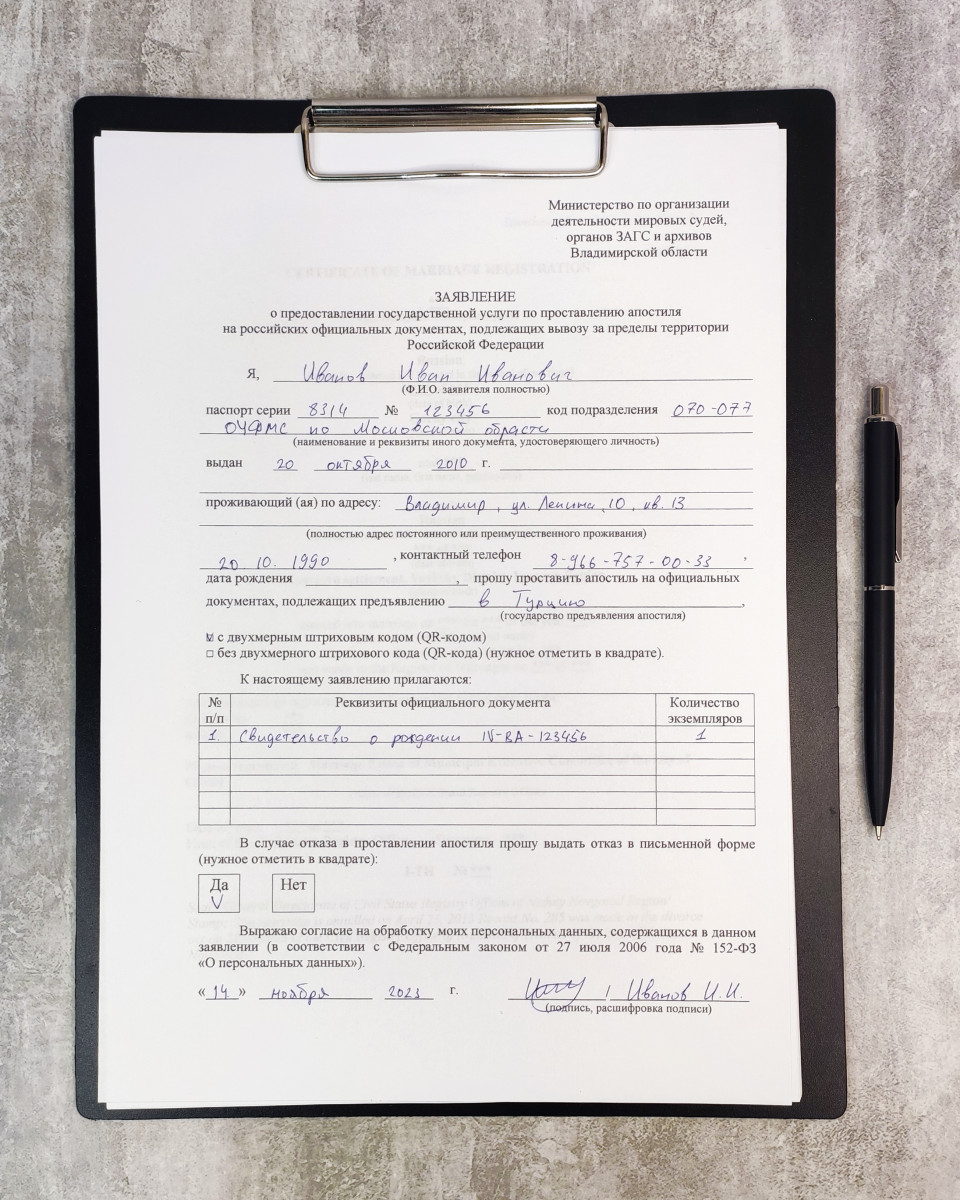 Министерство по организации
деятельности мировых судей,
органов ЗАГС и архивов
Владимирской области
ЗАЯВЛЕНИЕ
о предоставлении государственной услуги по проставлению апостиля
на российских официальных документах, подлежащих вывозу за пределы территории
Российской Федерации
Я, Иванов Иван Иванович
(Ф.И.О. заявителя полностью)
паспорт серии 8314 № 123456 код подразделения 070-077
ОУФМС по Московской области
(наименование и реквизиты иного документа, удостоверяющего личность)
выдан 20 октября 2010 г.
проживающий (ая) по адресу: Владимир, ул. Ленина, 10, кв. 13
(полностью адрес постоянного или преимущественного проживания)
20. 10. 1990, контактный телефон 8-966-757-00-33,
дата рождения , прошу проставить апостиль на официальных
документах, подлежащих предъявлению в Турцию,
(государство предъявления апостиля)
☑ с двухмерным штриховым кодом (QR-кодом)
□ без двухмерного штрихового кода (QR-кода) (нужное отметить в квадрате).
К настоящему заявлению прилагаются:
№ Реквизиты официального документа Количество
п/п экземпляров
1. Свидетельство о рождении IV-ВА-123456 1
В случае отказа в проставлении апостиля прошу выдать отказ в письменной форме
(нужное отметить в квадрате):
Да Нет
Выражаю согласие на обработку моих персональных данных, содержащихся в данном
заявлении (в соответствии с Федеральным законом от 27 июля 2006 года № 152-ФЗ
«О персональных данных»).
«14» ноября 2023 г. / Иванов И.И.
(подпись, расшифровка подписи)